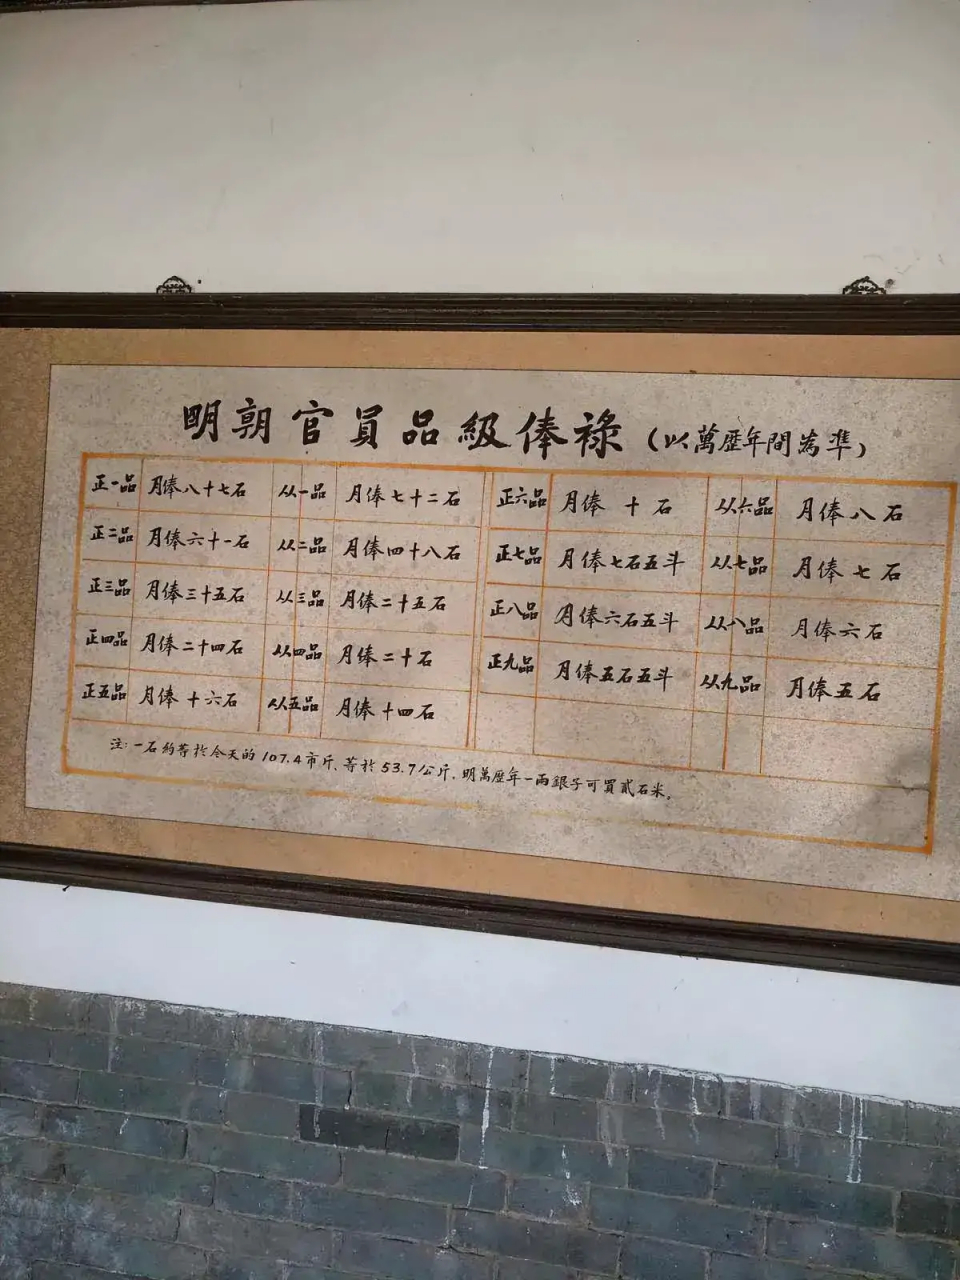 明朝官員品級俸祿（以萬歷年間為準）
正一品 月俸八十七石 从一品 月俸七十二石 正六品 月俸 十石 从六品 月俸八石
正二品 月俸六十一石 从二品 月俸四十八石 正七品 月俸七石五斗 从七品 月俸七石
正三品 月俸三十五石 从三品 月俸二十五石 正八品 月俸六石五斗 从八品 月俸六石
正四品 月俸二十四石 从四品 月俸二十石 正九品 月俸五石五斗 从九品 月俸五石
正五品 月俸十六石 从五品 月俸十四石
注：一石約等於今天的107.4市斤、等於53.7公斤．明萬歷年一兩銀子可買貳石米。